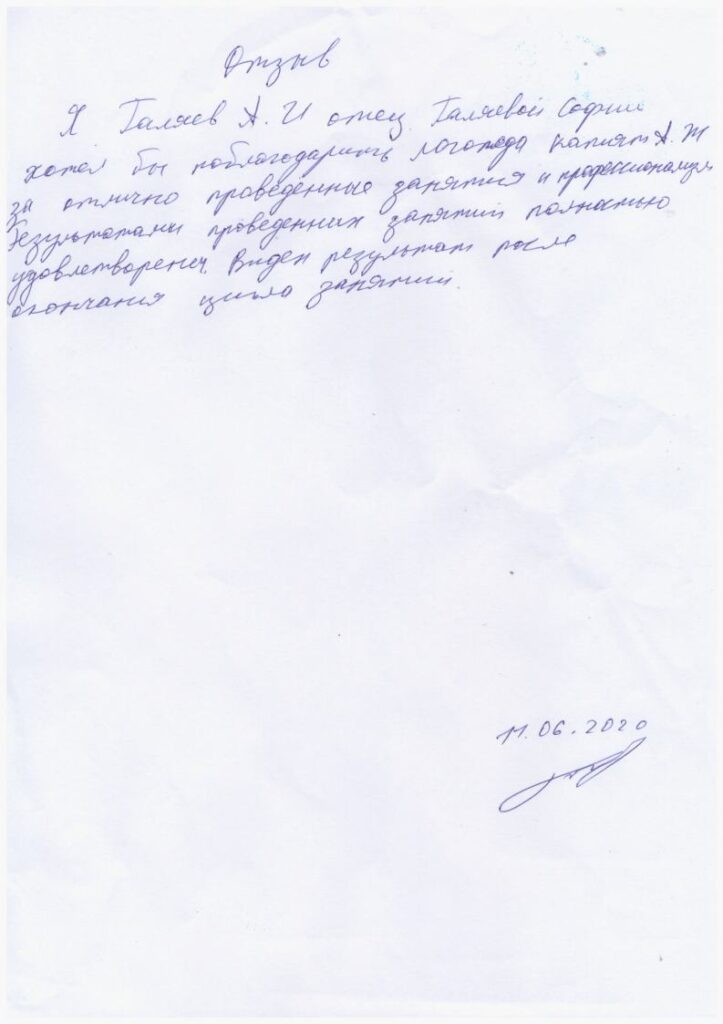 Отзыв
Я Галяев А. И отец Галяевой Софии
хотел бы поблагодарить логопеда А. Ж
за отлично проведенные занятия и профессионализм
Результатами проведенных занятий полностью
удовлетворены. Виден результат после
окончания цикла занятий.
11.06.2020